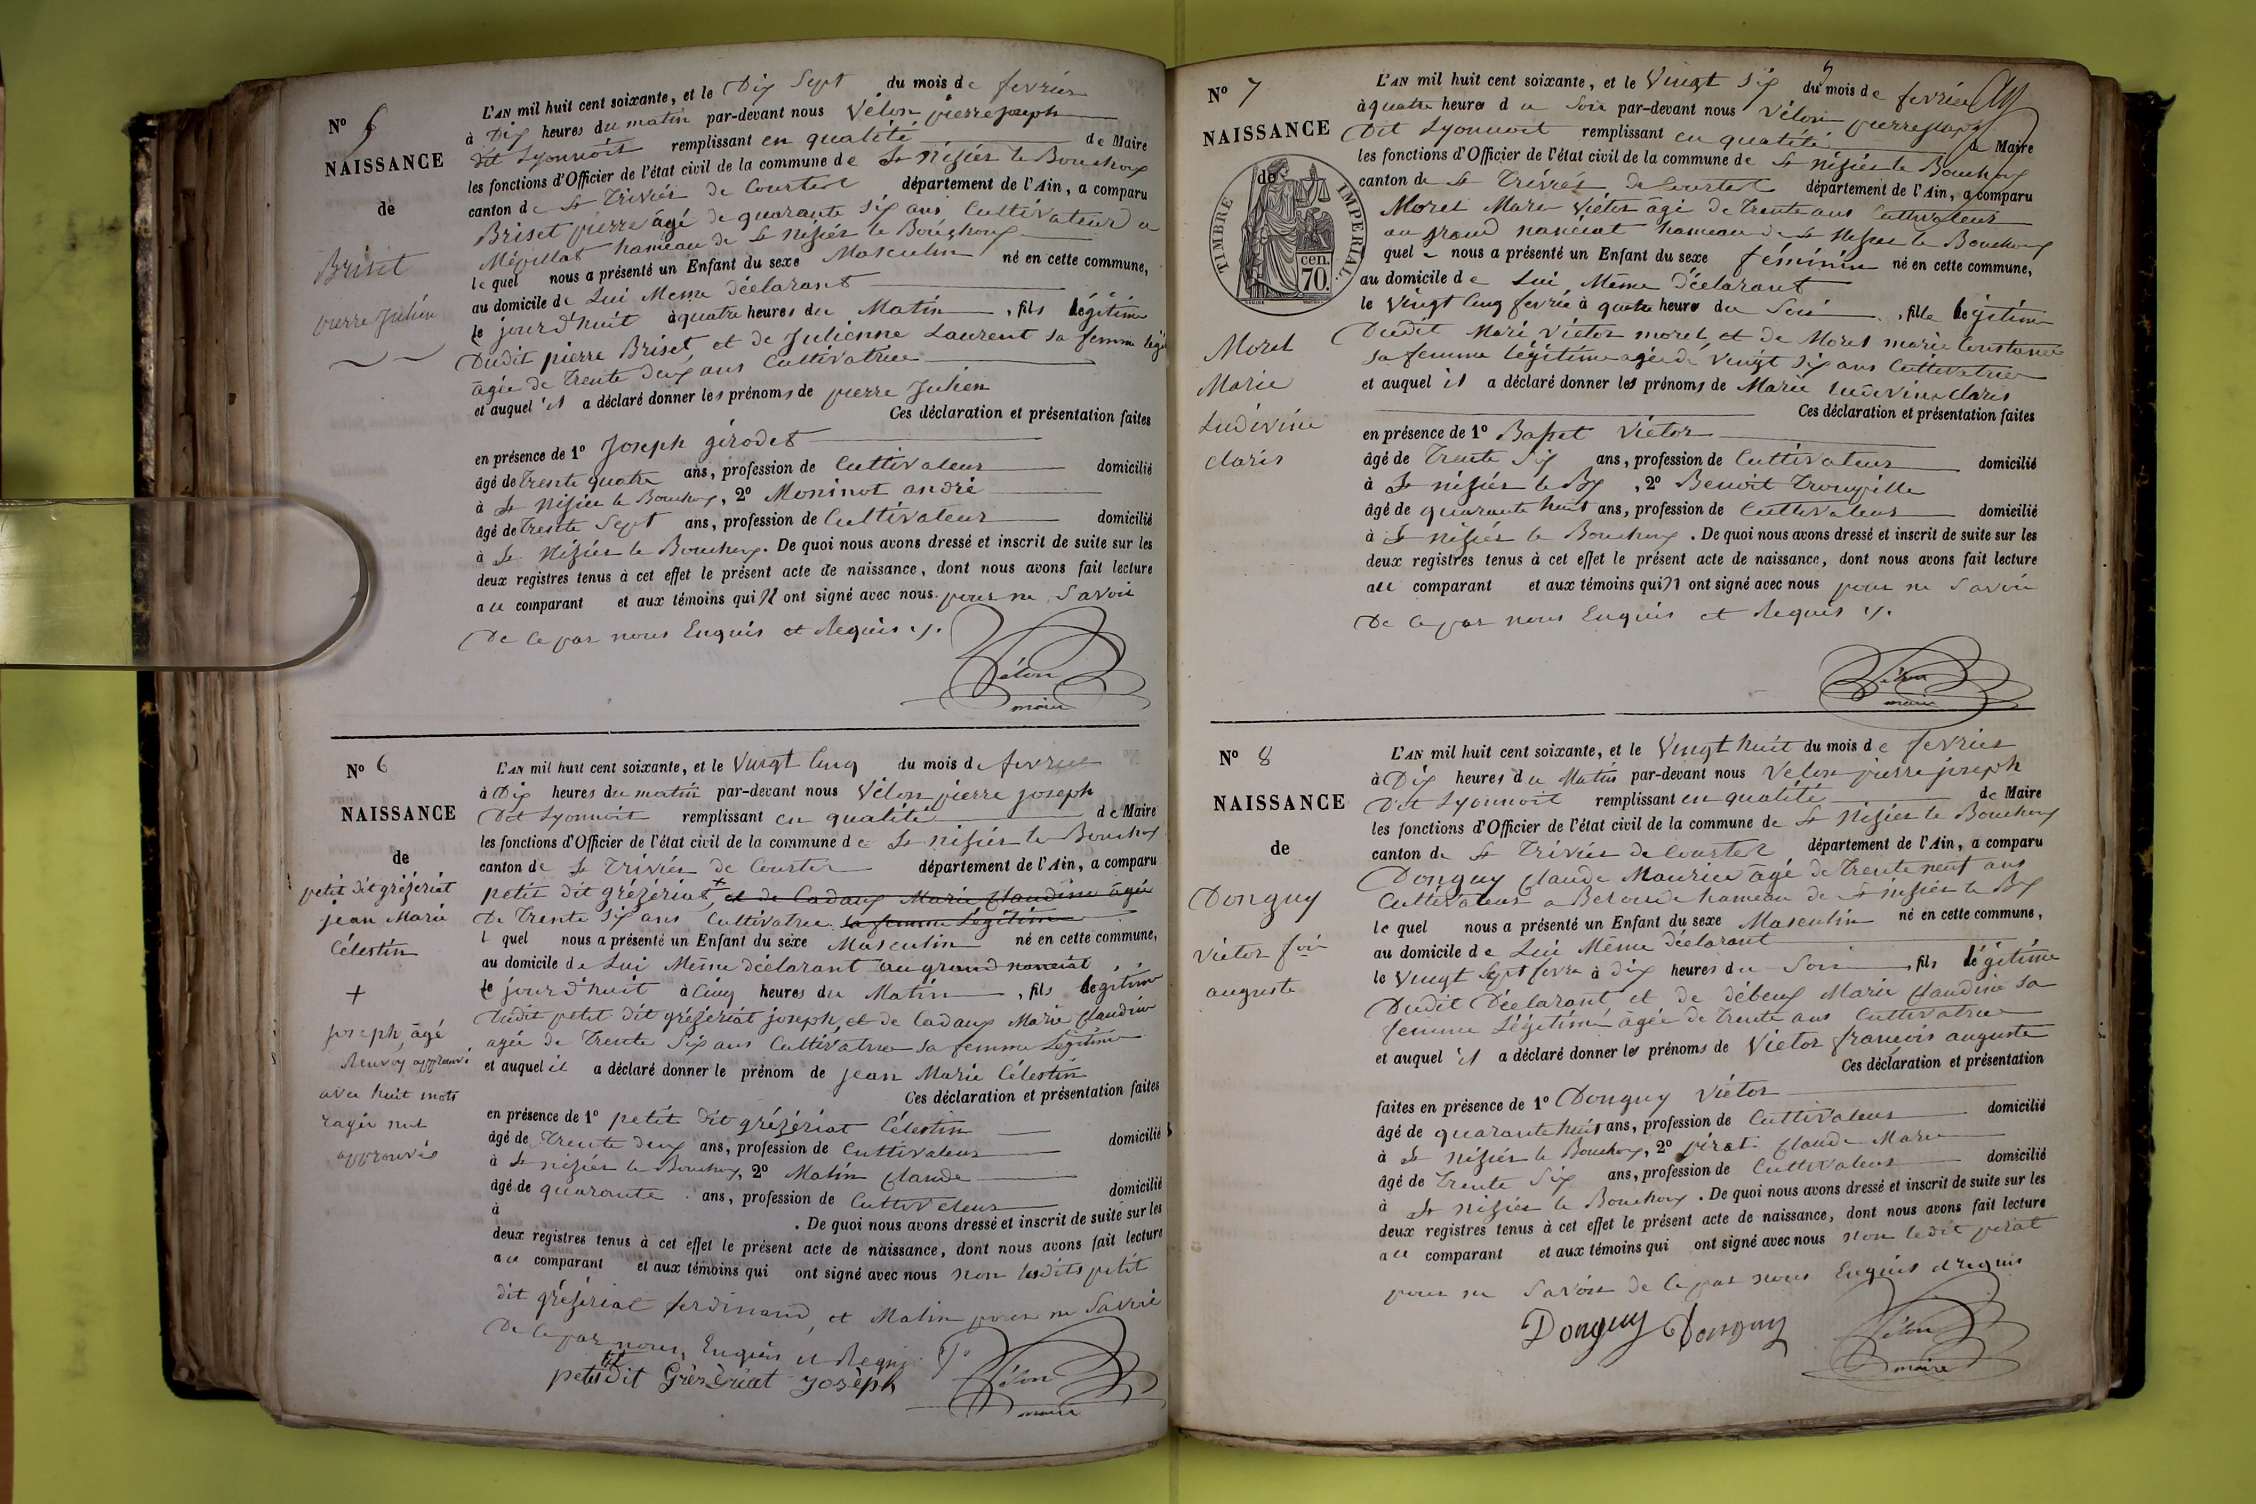 N° 5
NAISSANCE
de
Briset
pierre Julien
L'AN mil huit cent soixante, et le Dix Sept du mois de fevrier
à Dix heures du matin par-devant nous Vélon pierre joseph
dit Lyonnoit remplissant en qualité de Maire
les fonctions d'Officier de l'état civil de la commune de St Nizier le Bouchoux
canton de St Trivier de Courtest département de l'Ain, a comparu
Briset pierre âgé de quarante six ans Cultivateur a
Mépillat hameau de St Nizier le Bouchoux
le quel nous a présenté un Enfant du sexe Masculin né en cette commune,
au domicile de Lui Meme déclarant
le jourd'huit à quatre heures du Matin, fils légitime
Dudit pierre Briset et de Julienne Laurent sa femme légi
âgée de Trente deux ans Cultivatrice
et auquel il a déclaré donner les prénoms de pierre Julien
Ces déclaration et présentation faites
en présence de 1° Joseph gérodet
âgé de Trente quatre ans, profession de Cultivateur domicilié
à St Nizier le Bouchoux, 2° Moninot andré
âgé de Trente Sept ans, profession de Cultivateur domicilié
à St Nizier le Bouchoux. De quoi nous avons dressé et inscrit de suite sur les
deux registres tenus à cet effet le présent acte de naissance, dont nous avons fait lecture
au comparant et aux témoins qui n ont signé avec nous pour ne Savoir
De Ce par nous Enquis et Requis ./.
Vélon
maire
N° 6
NAISSANCE
de
petit dit grézériat
jean Marie
Célestin
+
Joseph, âgé
Renvoy approuvé
avec huit mots
rayés nul
approuvés
L'AN mil huit cent soixante, et le Vingt Cinq du mois de fevrier
à Dix heures du matin par-devant nous Vélon pierre joseph
Dit Lyonnoit remplissant en qualité de Maire
les fonctions d'Officier de l'état civil de la commune de St nizier le Bouchoux
canton de St Trivier de Courtes département de l'Ain, a comparu
petit dit grézériat + et de Cadaux Marie Claudine âgée
De Trente Six ans Cultivatrice sa femme Légitime
l quel nous a présenté un Enfant du sexe Masculin né en cette commune,
au domicile de Lui Même déclarant au grand nanciat
le jourd'huit à Cinq heures du Matin, fils légitime
Dudit petit dit grézériat joseph, et de Cadaux Marie Claudine
agée de Trente Six ans Cultivatrice sa femme Légitime
et auquel il a déclaré donner le prénom de jean Marie Célestin
Ces déclaration et présentation faites
en présence de 1° petit dit grézériat Célestin
âgé de Trente deux ans, profession de Cultivateur domicilié
à St nizier le Bouchoux, 2° Matin Claude
âgé de quarante ans, profession de Cultivateur domicilié
à . De quoi nous avons dressé et inscrit de suite sur les
deux registres tenus à cet effet le présent acte de naissance, dont nous avons fait lecture
au comparant et aux témoins qui ont signé avec nous non lesdits petit
dit grézériat ferdinand, et Matin pour ne Savoir
De Ce par nous, Enquis et Requis ./.
petit Dit Grèzèriat Josèph
Vélon
maire
N° 7
NAISSANCE
de
TIMBRE IMPERIAL.
cen.
70.
Morel
Marie
Ludivine
Claris
L'AN mil huit cent soixante, et le Vingt Six du mois de fevrier
à quatre heures du Soir par-devant nous Vélon pierre joseph
Dit Lyonnoit remplissant en qualité de Maire
les fonctions d'Officier de l'état civil de la commune de St nizier le Bouchoux
canton de St Trivier de Courtest département de l'Ain, a comparu
Morel Marie Victor âgé de Trente ans Cultivateur
au grand nanciat hameau de St Nizier le Bouchoux
quel nous a présenté un Enfant du sexe féminin né en cette commune,
au domicile de Lui Même déclarant
le Vingt Cinq fevrie à quatre heures du Soir, fille légitime
Dudit Marie Victor morel, et de Morel marie Constance
sa femme légitime agée de Vingt Six ans Cultivatrice
et auquel il a déclaré donner les prénoms de Marie Ludivine Claris
Ces déclaration et présentation faites
en présence de 1° Basset Victor
âgé de Trente Six ans, profession de Cultivateur domicilié
à St nizier le Bx, 2° Benoit Trouville
âgé de quarante huit ans, profession de Cultivateur domicilié
à St nizier le Bouchoux. De quoi nous avons dressé et inscrit de suite sur les
deux registres tenus à cet effet le présent acte de naissance, dont nous avons fait lecture
au comparant et aux témoins qui n ont signé avec nous pour ne Savoir
De Ce par nous Enquis et Requis ./.
Vélon
maire
N° 8
NAISSANCE
de
Donguy
Victor fois
auguste
L'AN mil huit cent soixante, et le Vingt huit du mois de fevrier
à Dix heures du Matin par-devant nous Vélon pierre joseph
Dit Lyonnoit remplissant en qualité de Maire
les fonctions d'Officier de l'état civil de la commune de St Nizier le Bouchoux
canton de St Trivier de Courtest département de l'Ain, a comparu
Donguy Claude Maurice âgé de Trente neuf ans
Cultivateur a hameau de St nizier le Bx
le quel nous a présenté un Enfant du sexe Masculin né en cette commune,
au domicile de Lui Même déclarant
le Vingt Sept fevre à dix heures du Soir, fils légitime
Dudit Déclarant et de débeuf Marie Claudine sa
femme Légitime âgée de Trente ans Cultivatrice
et auquel il a déclaré donner les prénoms de Victor françois auguste
Ces déclaration et présentation
faites en présence de 1° Donguy Victor
âgé de quarante huit ans, profession de Cultivateur domicilié
à St Nizier le Bouchoux, 2° pérat Claude Marie
âgé de Trente Six ans, profession de Cultivateur domicilié
à St Nizier le Bouchoux. De quoi nous avons dressé et inscrit de suite sur les
deux registres tenus à cet effet le présent acte de naissance, dont nous avons fait lecture
au comparant et aux témoins qui ont signé avec nous non ledit pérat
pour ne Savoir de Ce par nous Enquis et requis
Donguy Donguy
Vélon
maire